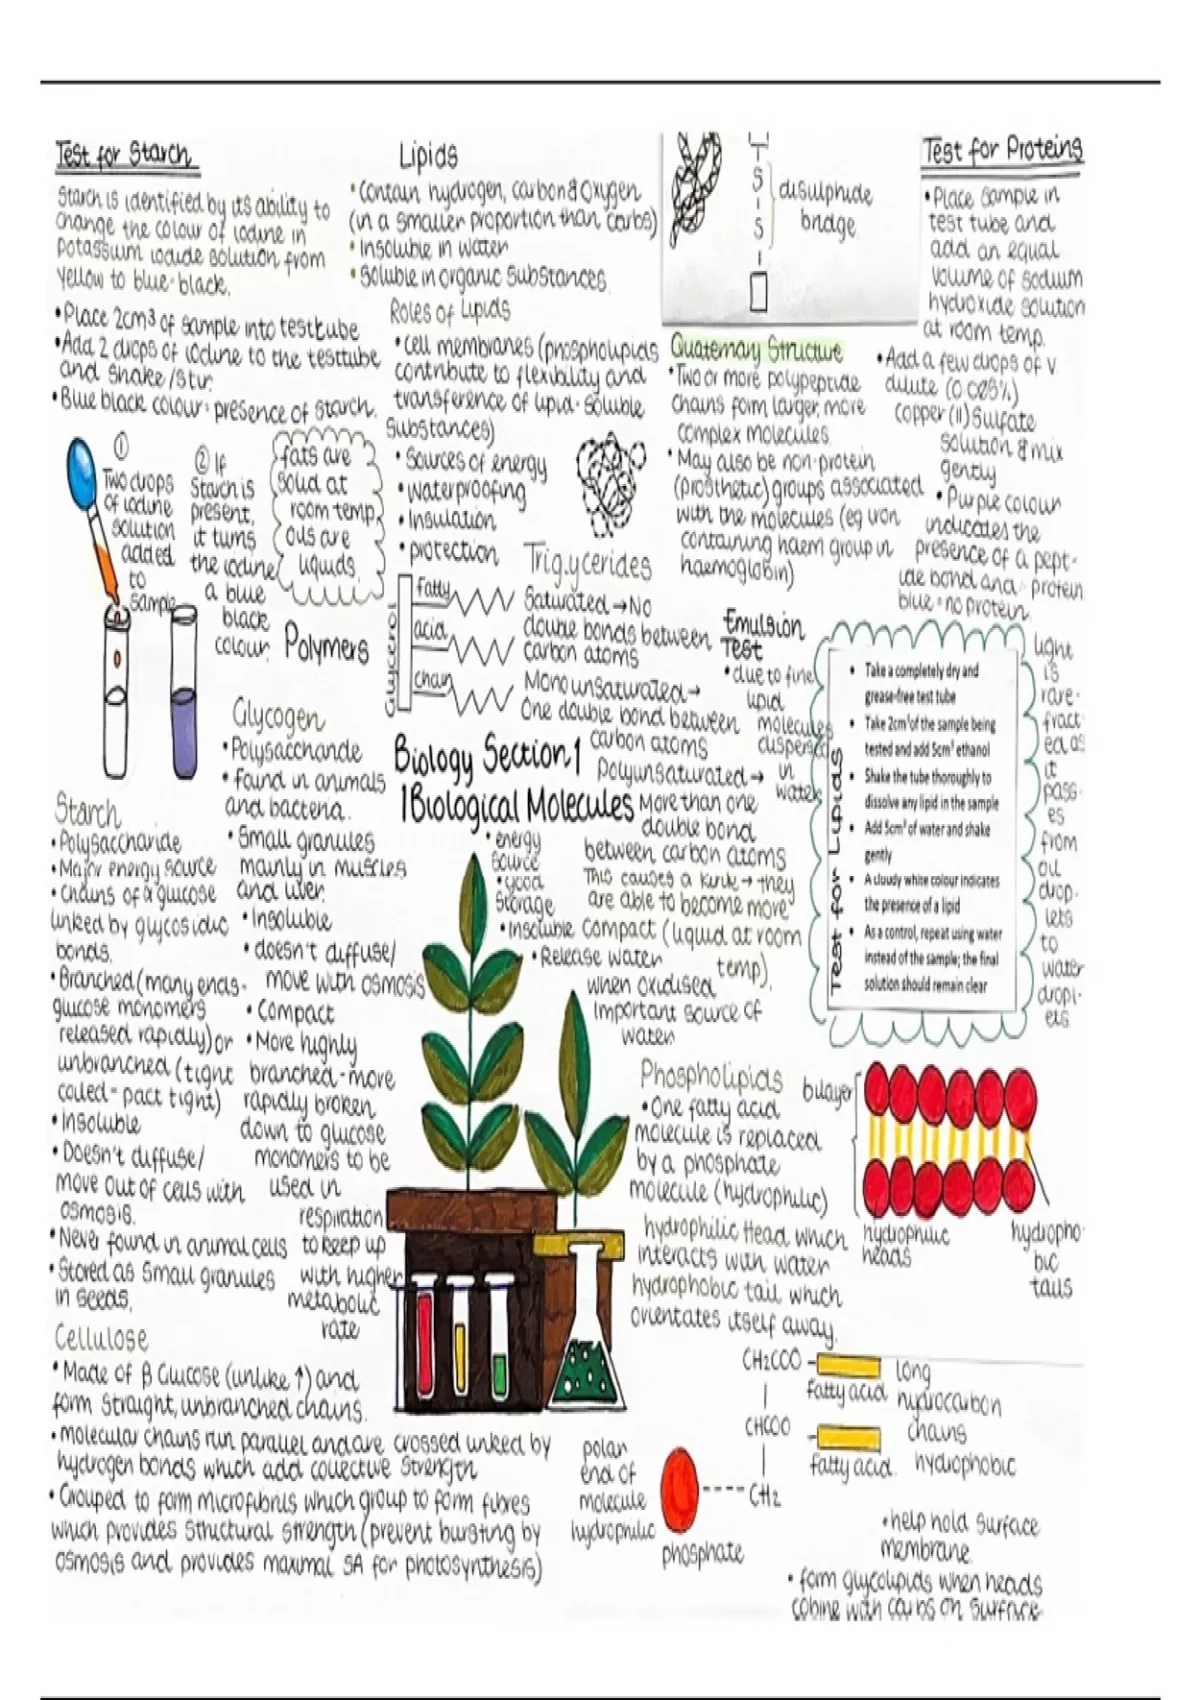 Test for Starch
Starch is identified by its ability to
change the colour of iodine in
potassium iodide solution from
yellow to blue-black.
• Place 2cm³ of sample into testtube
• Add 2 drops of iodine to the testtube
and shake/stir.
• Blue black colour = presence of starch.
①
Two drops
of iodine
solution
added
to
sample
② If
starch is
present,
it turns
the iodine
a blue
black
colour.
fats are
solid at
room temp,
oils are
liquids.
Polymers
Glycogen
• Polysaccharide
• found in animals
and bacteria.
• Small granules
mainly in muscles
and liver.
• Insoluble
• doesn't diffuse/
move with osmosis
• Compact
• More highly
branched - more
rapidly broken
down to glucose
monomers to be
used in
respiration
to keep up
with higher
metabolic
rate
Starch
• Polysaccharide
• Major energy source
• Chains of α glucose
linked by glycosidic
bonds.
• Branched (many ends-
glucose monomers
released rapidly) or
unbranched (tight
coiled = pact tight)
• Insoluble
• Doesn't diffuse/
move out of cells with
osmosis.
• Never found in animal cells
• Stored as small granules
in seeds.
Cellulose
• Made of β Glucose (unlike ↑) and
form straight, unbranched chains.
• Molecular chains run parallel and are crossed linked by
hydrogen bonds which add collective strength
• Grouped to form microfibrils which group to form fibres
which provides structural strength (prevent bursting by
osmosis and provides maximal SA for photosynthesis)
Lipids
• Contain hydrogen, carbon & oxygen
(in a smaller proportion than carbs)
• Insoluble in water
• Soluble in organic substances.
Roles of Lipids
• Cell membranes (phospholipids
contribute to flexibility and
transference of lipid-soluble
substances)
• Sources of energy
• Waterproofing
• Insulation
• protection
Triglycerides
Glycerol
fatty
acid
chain
Saturated → No
double bonds between
carbon atoms
Monounsaturated →
One double bond between
carbon atoms
Polyunsaturated →
More than one
double bond
between carbon atoms
This causes a kink → they
are able to become more
compact (liquid at room
temp).
Biology Section 1
1 Biological Molecules
• energy
source
• good
storage
• Insoluble
• Release water
when oxidised
Important source of
water
disulphide
bridge
S
S
Quaternary Structure
• Two or more polypeptide
chains form larger, more
complex molecules
• May also be non-protein
(prosthetic) groups associated
with the molecules (eg iron
containing haem group in
haemoglobin)
Test for Proteins
• Place sample in
test tube and
add an equal
volume of sodium
hydroxide solution
at room temp.
• Add a few drops of v
dilute (0.005%)
copper (II) Sulfate
solution & mix
gently
• Purple colour
indicates the
presence of a pept-
ide bond and protein
blue = no protein.
Emulsion
Test
• due to fine
lipid
molecules
dispersed
in
water
Test for Lipids
• Take a completely dry and
grease-free test tube
• Take 2cm³ of the sample being
tested and add 5cm³ ethanol
• Shake the tube thoroughly to
dissolve any lipid in the sample
• Add 5cm³ of water and shake
gently
• A cloudy white colour indicates
the presence of a lipid
• As a control, repeat using water
instead of the sample; the final
solution should remain clear
light
is
rare-
fract
ed as
it
pass-
es
from
oil
drop-
lets
to
water
dropl-
ets
Phospholipids
• One fatty acid
molecule is replaced
by a phosphate
molecule (hydrophilic)
hydrophilic Head which
interacts with water
hydrophobic tail which
orientates itself away.
bilayer
hydrophilic
heads
hydropho
bic
tails
CH2COO
fatty acid
CHCOO
fatty acid.
CH2
long
hydrocarbon
chains
hydrophobic
polar
end of
molecule
hydrophilic
phosphate
• help hold surface
membrane.
• form glycolipids when heads
cobine with carbs on surface